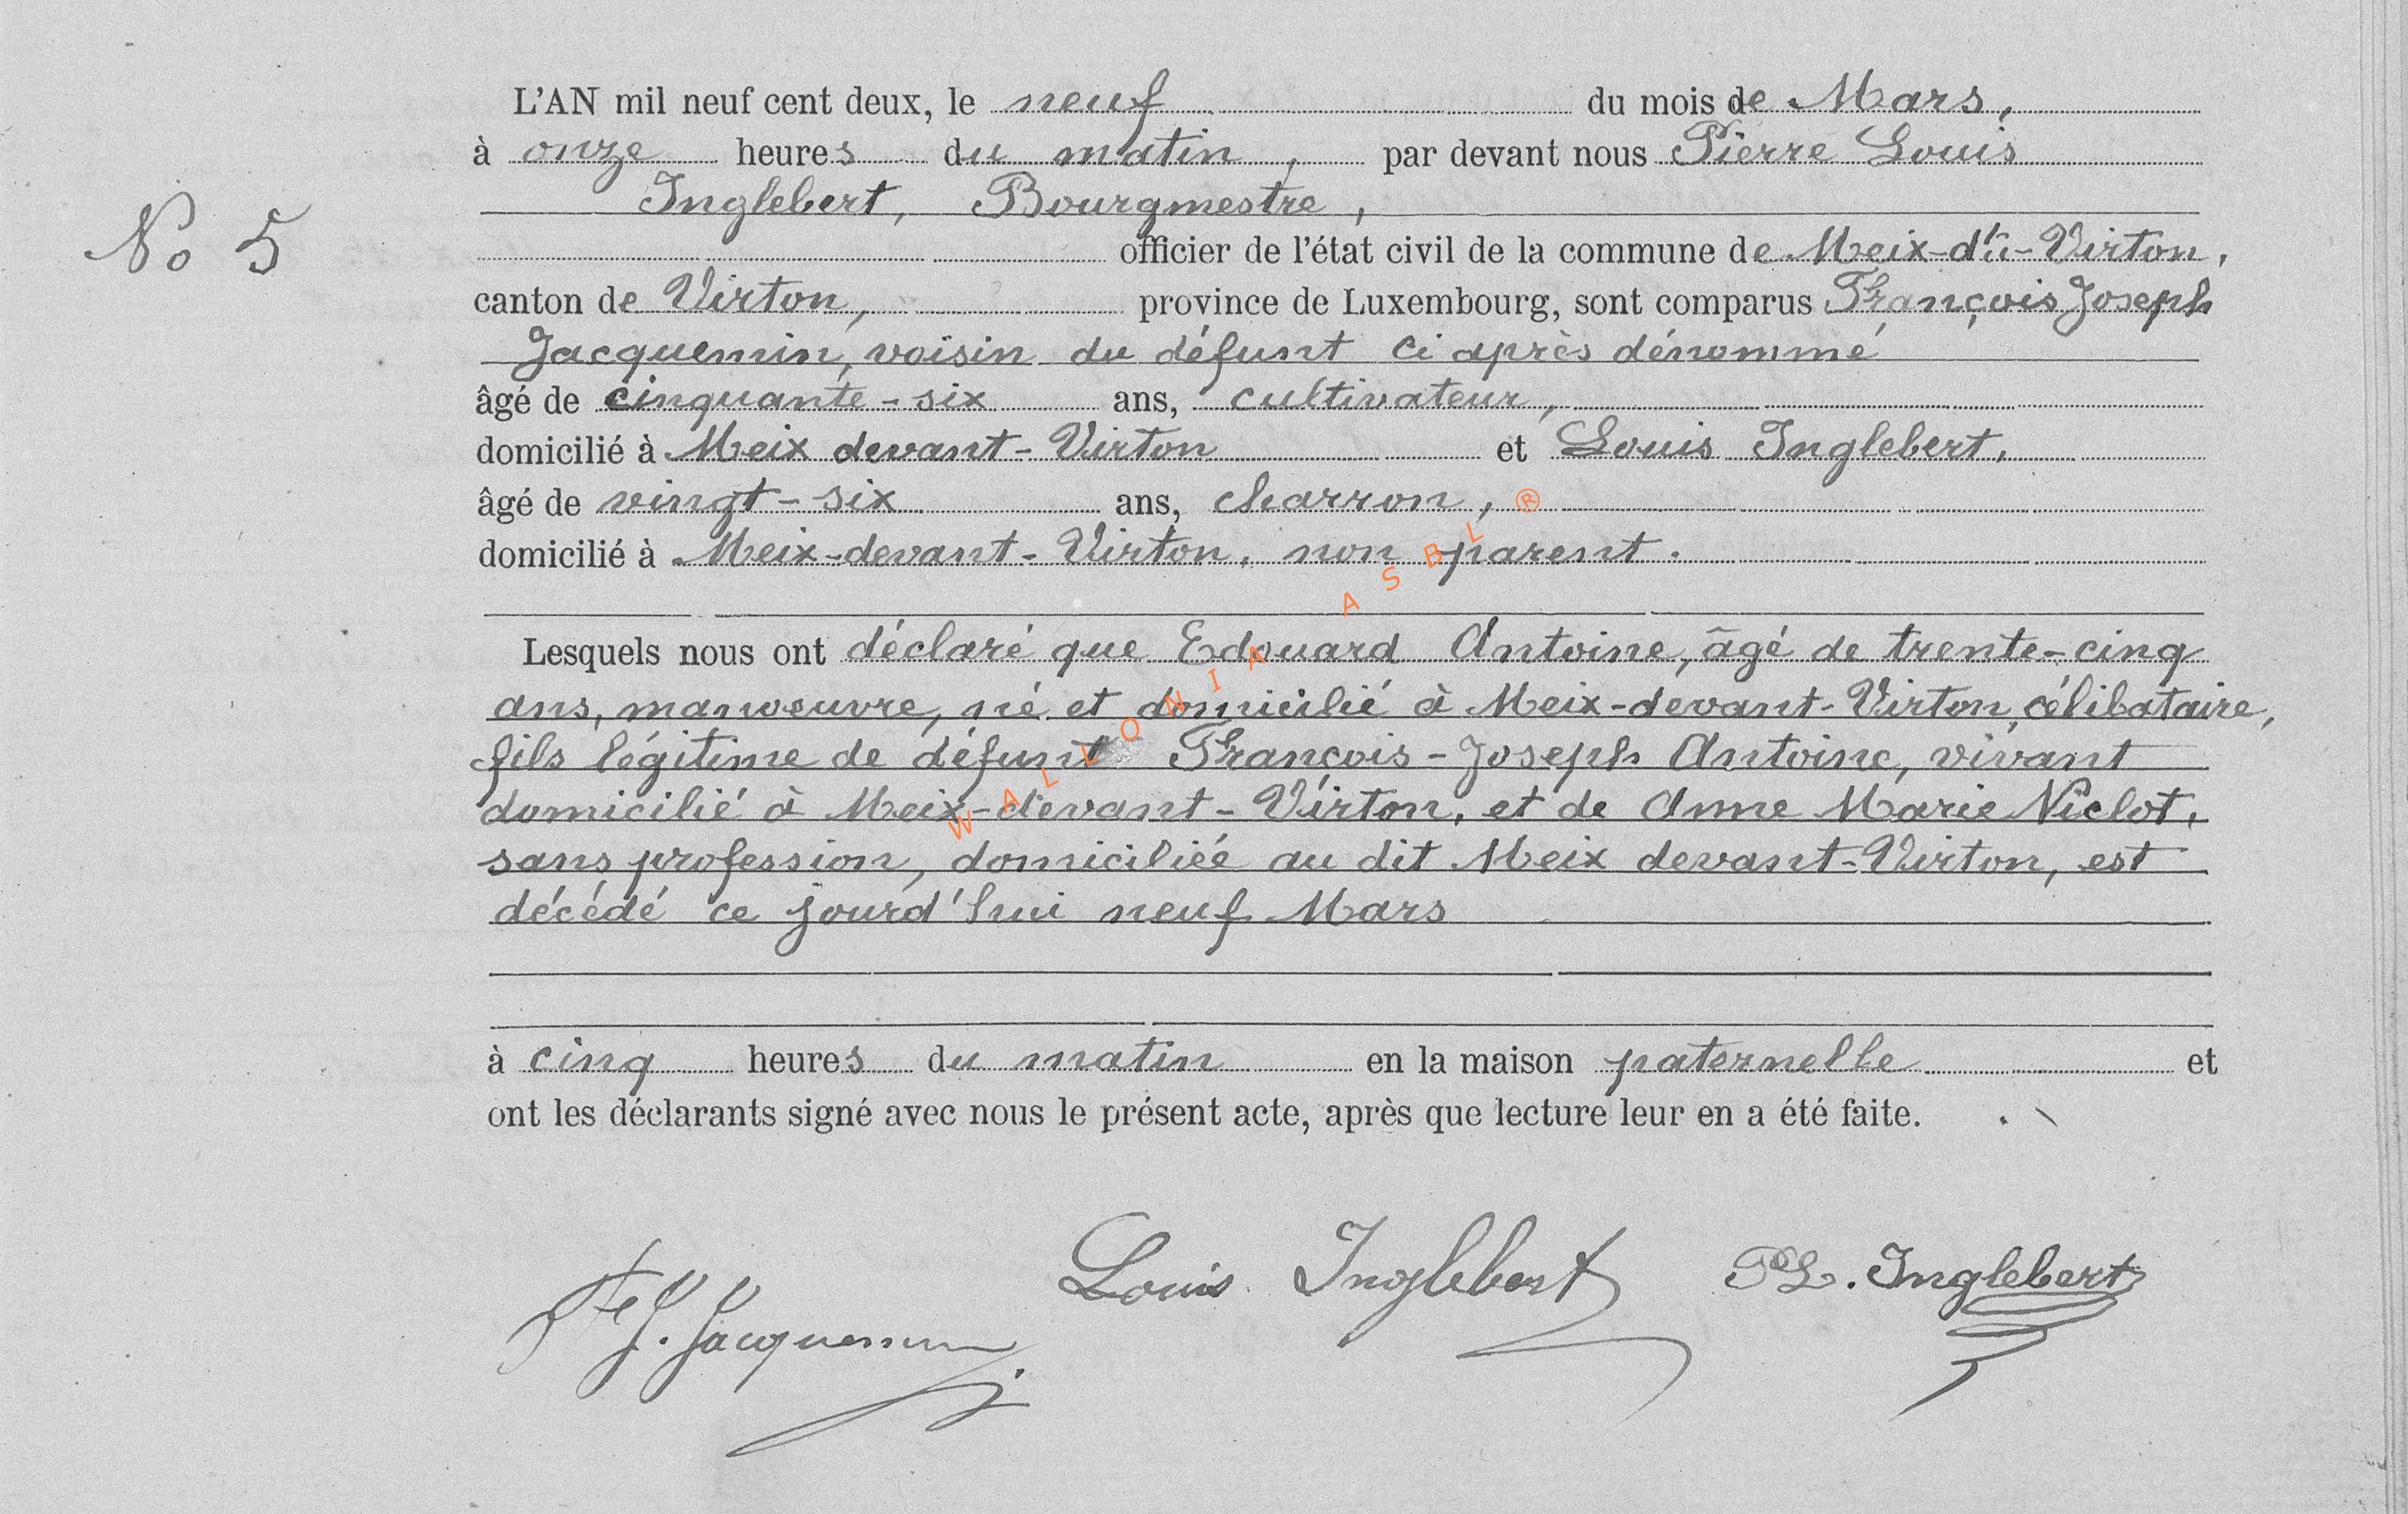 L'AN mil neuf cent deux, le neuf du mois de Mars,
à onze heures du matin, par devant nous Pierre Louis
Inglebert, Bourgmestre,
No 5
officier de l'état civil de la commune de Meix-dt-Virton,
canton de Virton, province de Luxembourg, sont comparus François Joseph
Jacquemin, voisin du défunt ci après dénommé
âgé de cinquante-six ans, cultivateur,
domicilié à Meix devant-Virton et Louis Inglebert,
âgé de vingt-six ans, charron,
domicilié à Meix-devant-Virton, non parent.
Lesquels nous ont déclaré que Edouard Antoine, âgé de trente-cinq
ans, manœuvre, né et domicilié à Meix-devant-Virton, célibataire,
fils légitime de défunt François-Joseph Antoine, vivant
domicilié à Meix-devant-Virton, et de Anne Marie Niclot,
sans profession, domiciliée au dit Meix devant-Virton, est
décédé ce jourd'hui neuf Mars
à cinq heures du matin en la maison paternelle et
ont les déclarants signé avec nous le présent acte, après que lecture leur en a été faite.
F. J. Jacquemin
Louis Inglebert
P L. Inglebert
WALLONIA ASBL ®